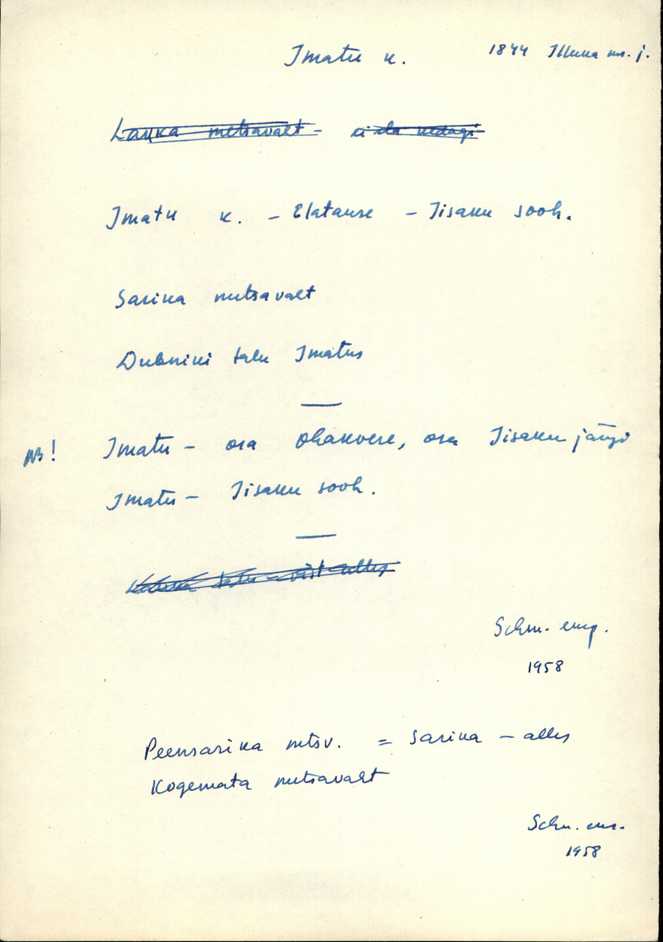 Imatu k. 1844 Illuka ms. j.
Lauka metsavaht -
Imatu k. - Elatause - Iisaku sooh.
Sarika metsavaht
Dubniki talu Imatus
NB! Imatu - osa Ohakvere, osa Iisaku järgi
Imatu - Iisaku sooh.
talu - vist alles
Schm.
1958
Peensarika mtsv. = Sarika - alles
Kogemata metsavaht
Schm.
1958